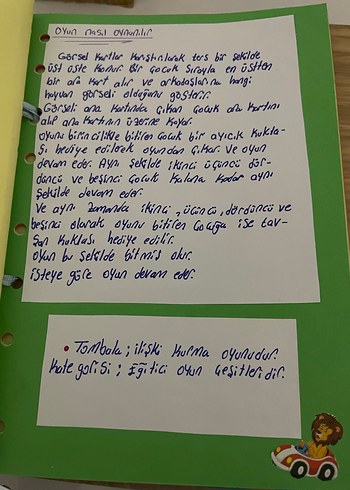 Oyun nasıl oynanılır
Görsel kartlar karıştırılarak ters bir şekilde
üst üste konur. Bir çocuk sırayla en üstten
bir ara kart alır ve arkadaşlarına hangi
hayvan görseli olduğunu gösterir.
Görseli ana kartında çıkan çocuk ara kartını
alıp ana kartının üzerine koyar.
oyunu birincilikle bitiren çocuk bir ayıcık kukla-
sı hediye edilerek oyundan çıkar. Ve oyun
devam eder. Aynı şekilde ikinci üçüncü dör-
düncü ve beşinci çocuk kalana kadar aynı
şekilde devam eder.
Ve aynı zamanda ikinci, üçüncü, dördüncü ve
beşinci olarak oyunu bitiren çocuğa ise tav-
şan kuklası hediye edilir.
oyun bu şekilde bitmiş olur.
isteye göre oyun devam eder.
• Tombala; ilişki kurma oyunudur.
Kategorisi; Eğitici oyun çeşitleridir.